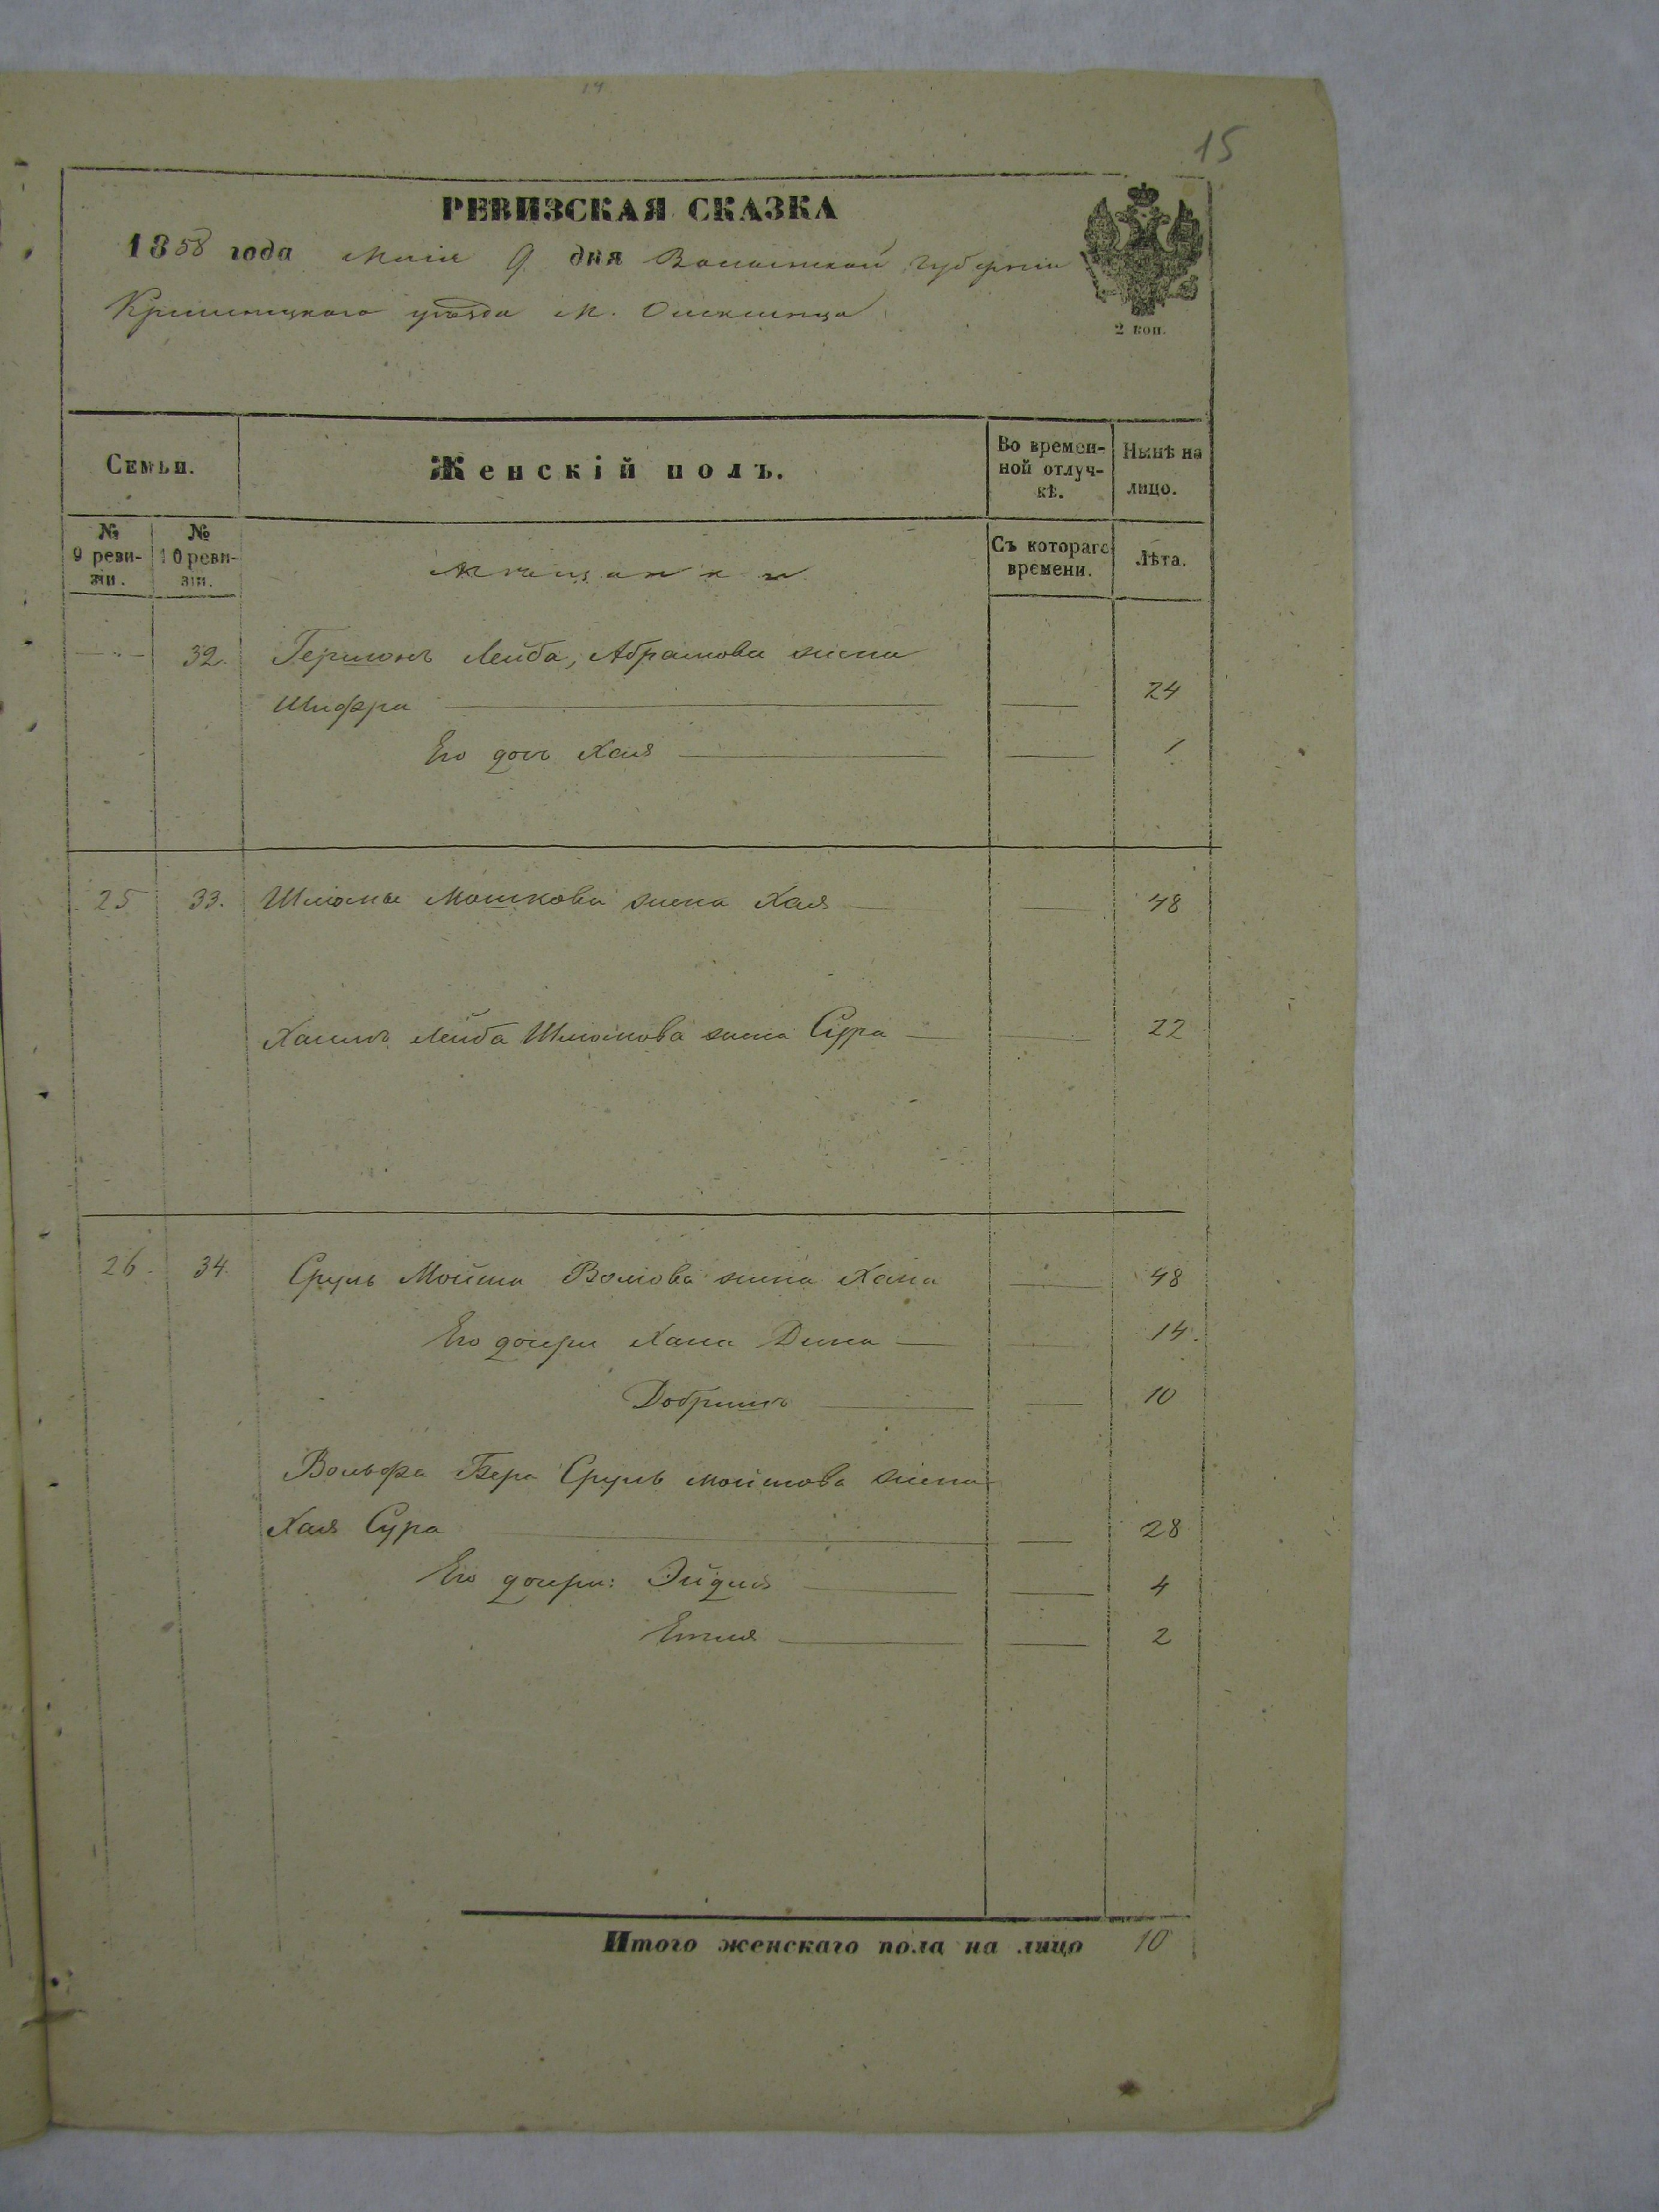 14
15
РЕВИЗСКАЯ СКАЗКА
1858 года Маія 9 дня Волынской губерніи
2 коп.
Кременецкаго уѣзда м. Олексинца
Семьи.
Женскій полъ.
Во времен-
ной отлуч-
кѣ.
Нынѣ на
лицо.
№
9 реви-
зіи.
№
10 реви-
зіи.
Мѣщанки
Съ котораго
времени.
Лѣта.
32. Гершонъ Лейба, Абрамова жена
Шифра 24
Его дочь Хая 1
25 33. Шломы Мошкова жена Хая 48
Хаимъ Лейба Шломова жена Сура 22
26. 34. Сруль Мойша Волова жена Хана 48
Его дочери Хана Дина 14.
Добришъ 10
Вольфа Бера Сруль Мойшова жена
Хая Сура 28
Его дочери: Эйдля 4
Етля 2
Итого женскаго пола на лицо 10